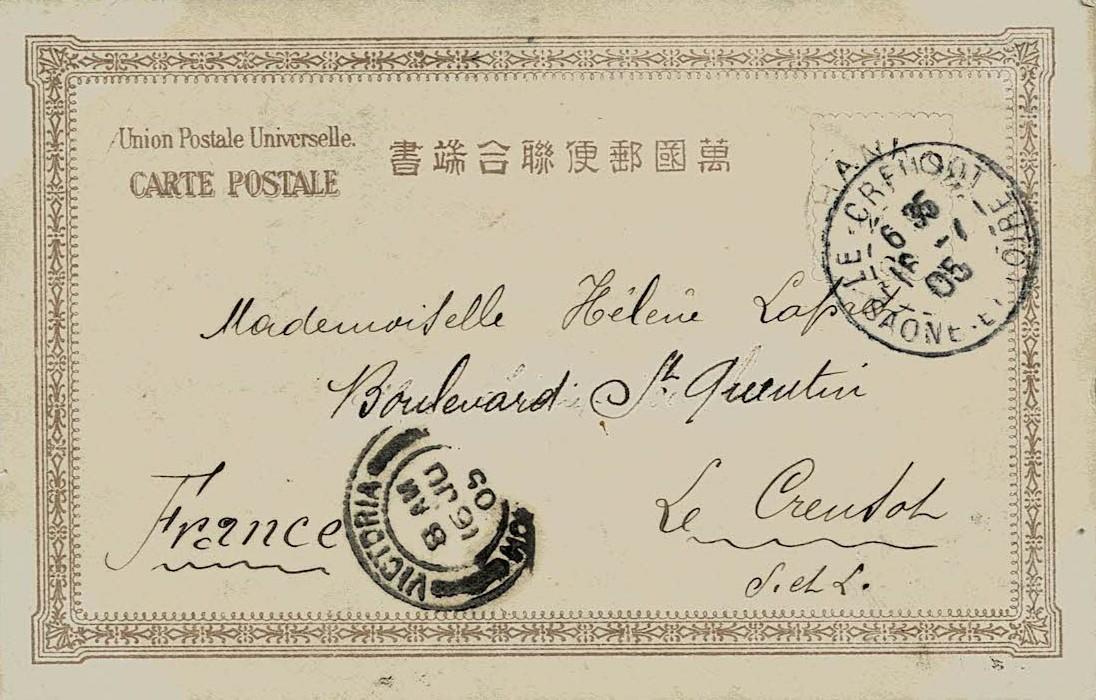 Union Postale Universelle.
CARTE POSTALE
書端合聯便郵國萬
HANK
LE CREUSOT
6 35
16 -1
05
SAONE-ET-LOIRE
Mademoiselle Hélène
Boulevard St Quentin
France
Le Creusot
S. et L.
VICTORIA
8 AM
16 JU
05